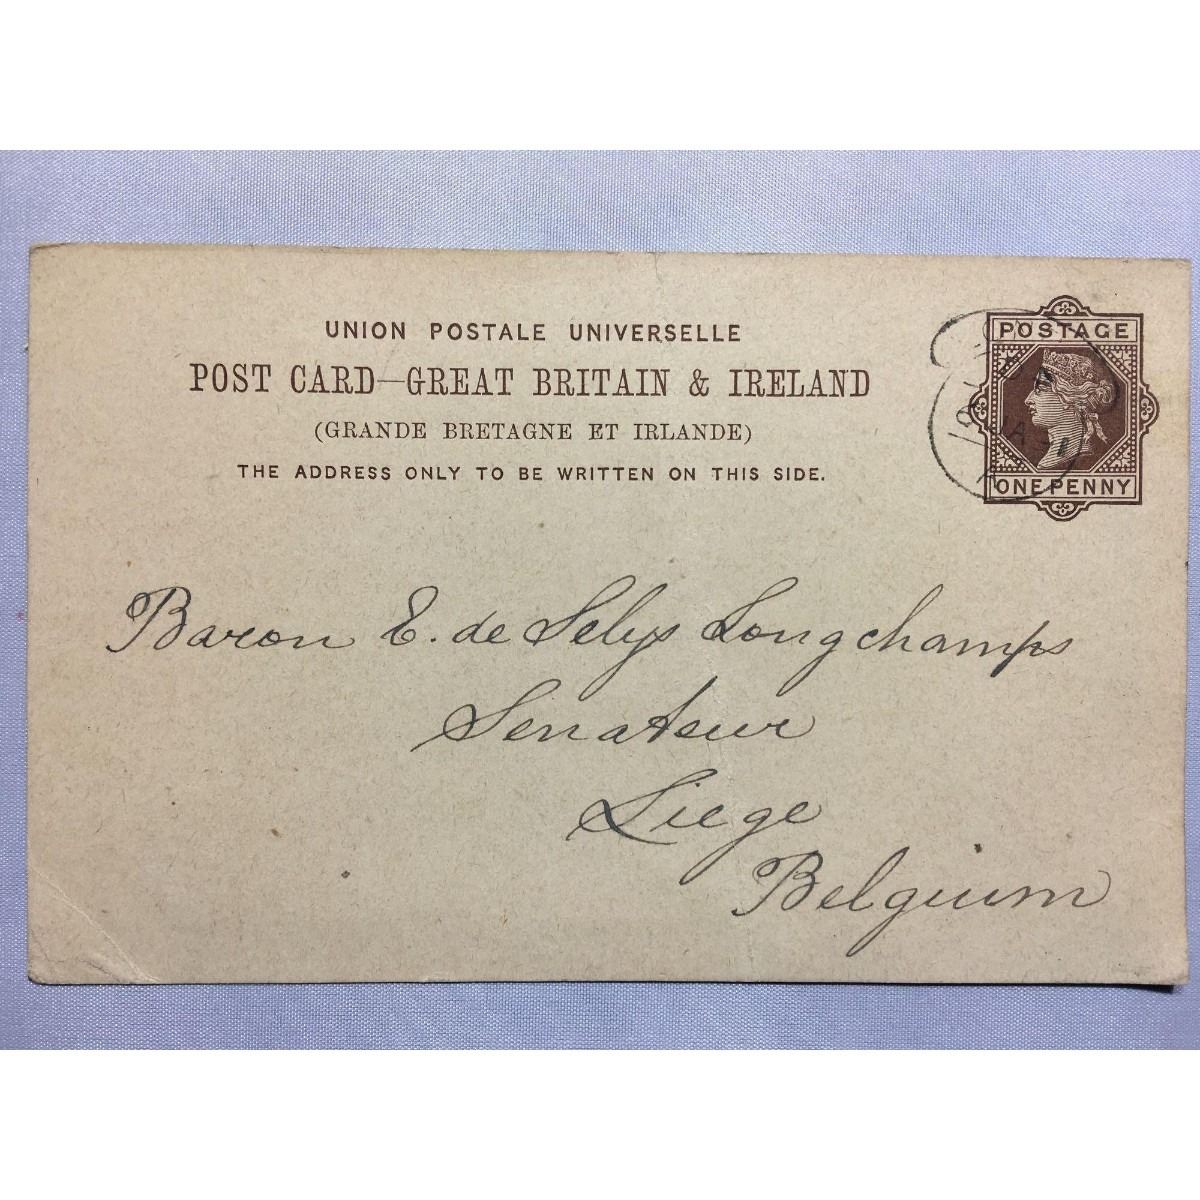 UNION POSTALE UNIVERSELLE
POST CARD—GREAT BRITAIN & IRELAND
(GRANDE BRETAGNE ET IRLANDE)
THE ADDRESS ONLY TO BE WRITTEN ON THIS SIDE.
POSTAGE
ONE PENNY
Baron E. de Selys Longchamps
Senateur
Liege
Belgium